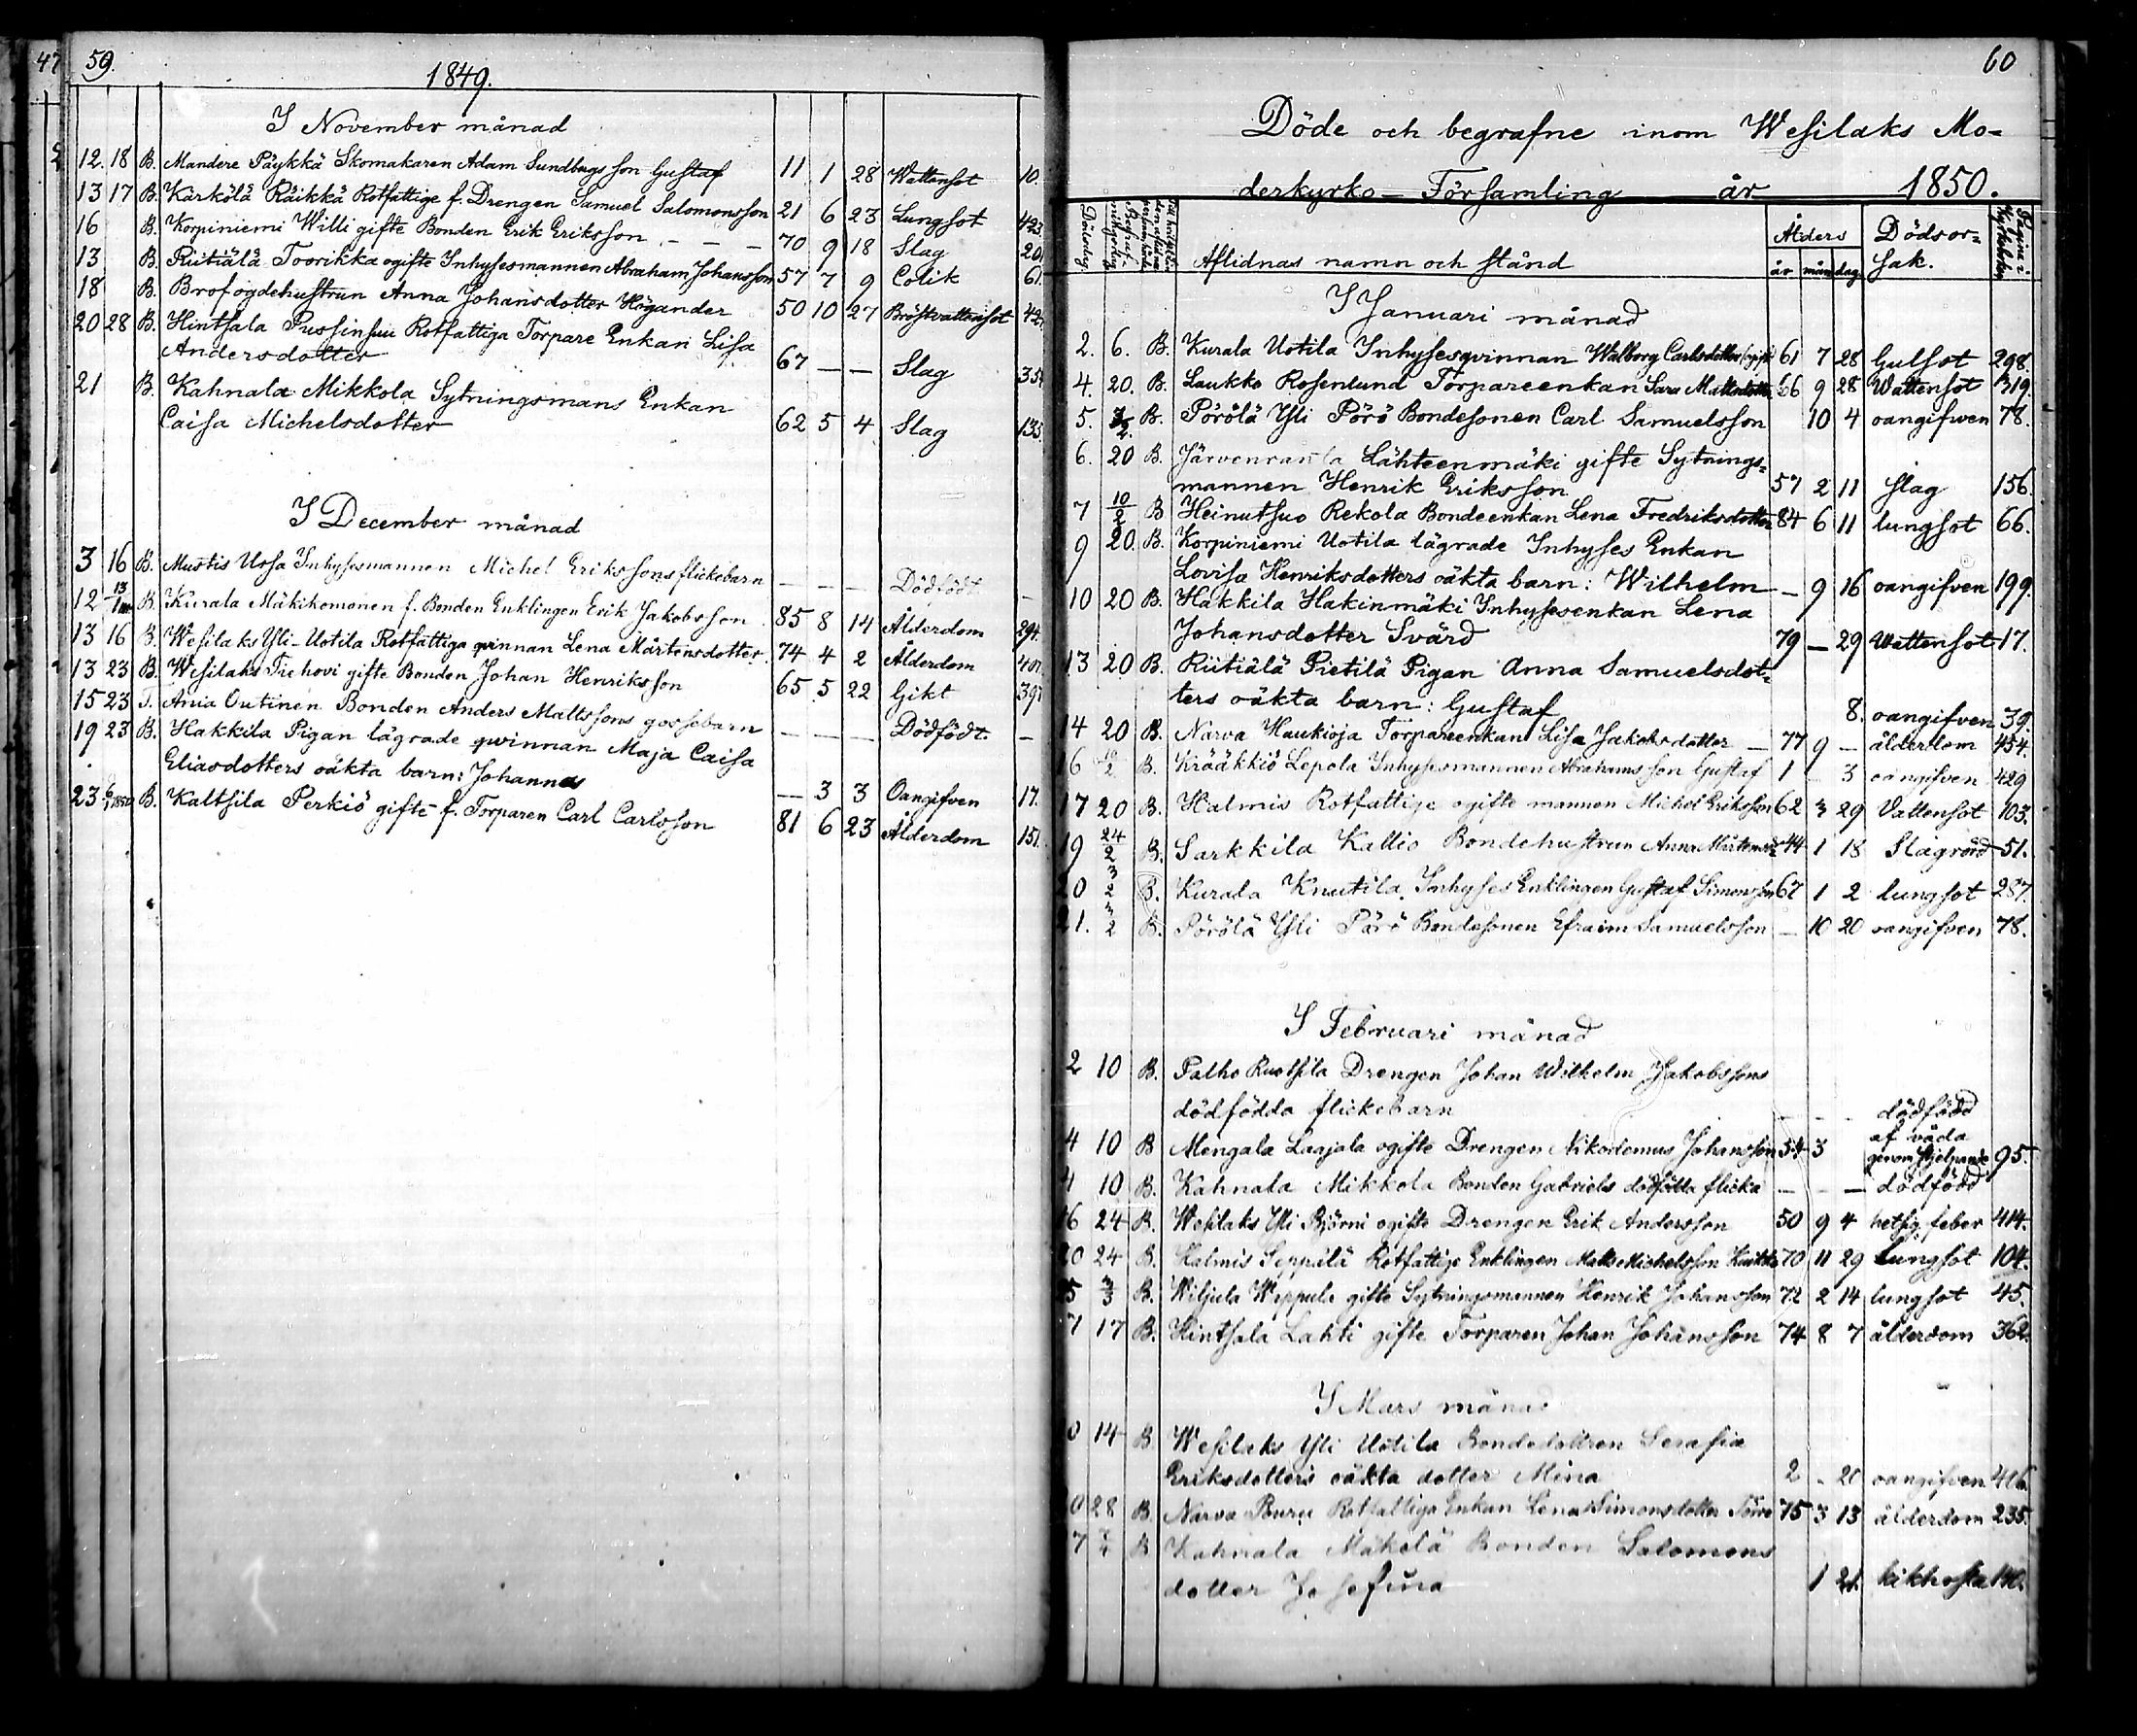 47
59.
1849.
I November månad
12. 18 B. Mandere Päykkä Skomakaren Adam Sundbergs son Gustaf 11 1 28 Wattensot 10.
13 17 B. Kärkölä Räikkä Rotfattige f. Drengen Samuel Salomonsson 21 6 23 Lungsot 423
16 B. Korpiniemi Willi gifte Bonden Erik Eriksson - - - 70 9 18 Slag 201
13 B. Riitiälä Toorikka ogifte Inhysesmannen Abraham Johansson 57 7 9 Colik 61.
18 B. Brofogdehustrun Anna Johansdotter Högander 50 10 27 Bröstvattensot 42
20 28 B. Hintsala Pussinsuu Rotfattiga Torpare Enkan Lisa
Andersdotter 67 — — Slag 354
21 B. Kahnala Mikkola Sytningsmans Enkan
Caisa Michelsdotter 62 5 4 Slag 135
I December månad
3 16 B. Mustis Ussa Inhysesmannen Michel Erikssons flickebarn — — — Dödfödt —
12 13/1 B. Kurala Mäkikomonen f. Bonden Enklingen Erik Jakobsson 85 8 14 Ålderdom 294.
13 16 B. Wesilaks Yli-Uotila Rotfattiga qvinnan Lena Mårtensdotter 74 4 2 Ålderdom 407
13 23 B. Wesilaks Tiehovi gifte Bonden Johan Henriksson 65 5 22 Gikt 397
15 23 T. Ania Outinen Bonden Anders Mattssons gossebarn — — — Dödfödt. —
19 23 B. Hakkila Pigan lägrade qvinnan Maja Caisa
Eliasdotters oäkta barn: Johannes — 3 3 Oangifven 17.
23 6/1 1850 B. Kaltsila Perkiö gifte f. Torparen Carl Carlsson 81 6 23 Ålderdom 151.
60
Döde och begrafne inom Wesilaks Mo-
derkyrko- Församling år 1850.
Dödsdag. Aflidnas namn och stånd Ålders Dödsor-
år mån dag sak.
I Januari månad
2. 6. B. Kurala Uotila Inhysesqvinnan Walborg Carlsdotter 61 7 28 Gulsot 298.
4. 20. B. Laukko Rosenlund Torpareenkan Sara Mattsdotter 66 9 28 Wattensot 319.
5. B. Pörölä Yli Pörö Bondesonen Carl Samuelsson 10 4 oangifven 78.
6. 20 B. Järvenranta Lähteenmäki gifte Sytnings-
mannen Henrik Eriksson 57 2 11 slag 156.
7 10/2 B Heinutsuo Rekola Bondeenkan Lena Fredriksdotter 84 6 11 lungsot 66.
9 20. B. Korpiniemi Uotila lägrade Inhyses Enkan
Lovisa Henriksdotters oäkta barn: Wilhelm — 9 16 oangifven 199.
10 20 B. Hakkila Hakinmäki Inhysesenkan Lena
Johansdotter Svärd 79 — 29 Wattensot 17.
13 20 B. Riitiälä Pietilä Pigan Anna Samuelsdot-
ters oäkta barn: Gustaf 8. oangifven 39.
14 20 B. Narva Haukioja Torpareenkan Lisa Jakobsdotter — 77 9 — ålderdom 454.
16 10/2 B. Krääkkiö Lepola Inhysesmannen Abrahams son Gustaf 1 — 3 oangifven 429
17 20 B. Halmis Rotfattige ogifte mannen Michel Eriksson 62 3 29 Vattensot 103.
19 24/2 B. Sarkkila Kallio Bondehustrun Anna Mårtensd: 44 1 18 Slagrörd 51.
20 3/2 B. Kurala Knutila Inhyses Enklingen Gustaf Simonsson 67 1 2 lungsot 287.
21. 3/2 B. Pörölä Yli Pörö Bondesonen Efraim Samuelsson — 10 20 oangifven 78.
I Februari månad
2 10 B. Palho Ruotsila Drengen Johan Wilhelm Jakobssons
dödfödda flickebarn — — — dödfödd
4 10 B Mengala Laajala ogifte Drengen Nikodemus Johansson 54 3 af våda genom 95.
4 10 B. Kahnala Mikkola Bonden Gabriels dödfödda flicka — — — dödfödd
16 24 B. Wesilaks Yli Björni ogifte Drengen Erik Andersson 50 9 4 hetsig feber 414.
20 24 B. Halmis Seppälä Rotfattige Enklingen Matts Michelsson 70 11 29 Lungsot 104.
5 3/3 B. Wiljula Weppula gifte Sytningsmannen Henrik Johansson 72 2 14 lungsot 45.
7 17 B. Hintsala Lahti gifte Torparen Johan Johansson 74 8 7 ålderdom 362.
I Mars månad
14 B Wesilaks Yli Uotila Bondedottren Serafia
Eriksdotters oäkta dotter Mina 2 - 20 oangifven 406.
28 B. Narva Buru Rotfattiga Enkan Lena Simonsdotter 75 3 13 ålderdom 235.
7 B Kahnala Mäkelä Bonden Salomons
dotter Josefina 1 21. kikhosta 140.